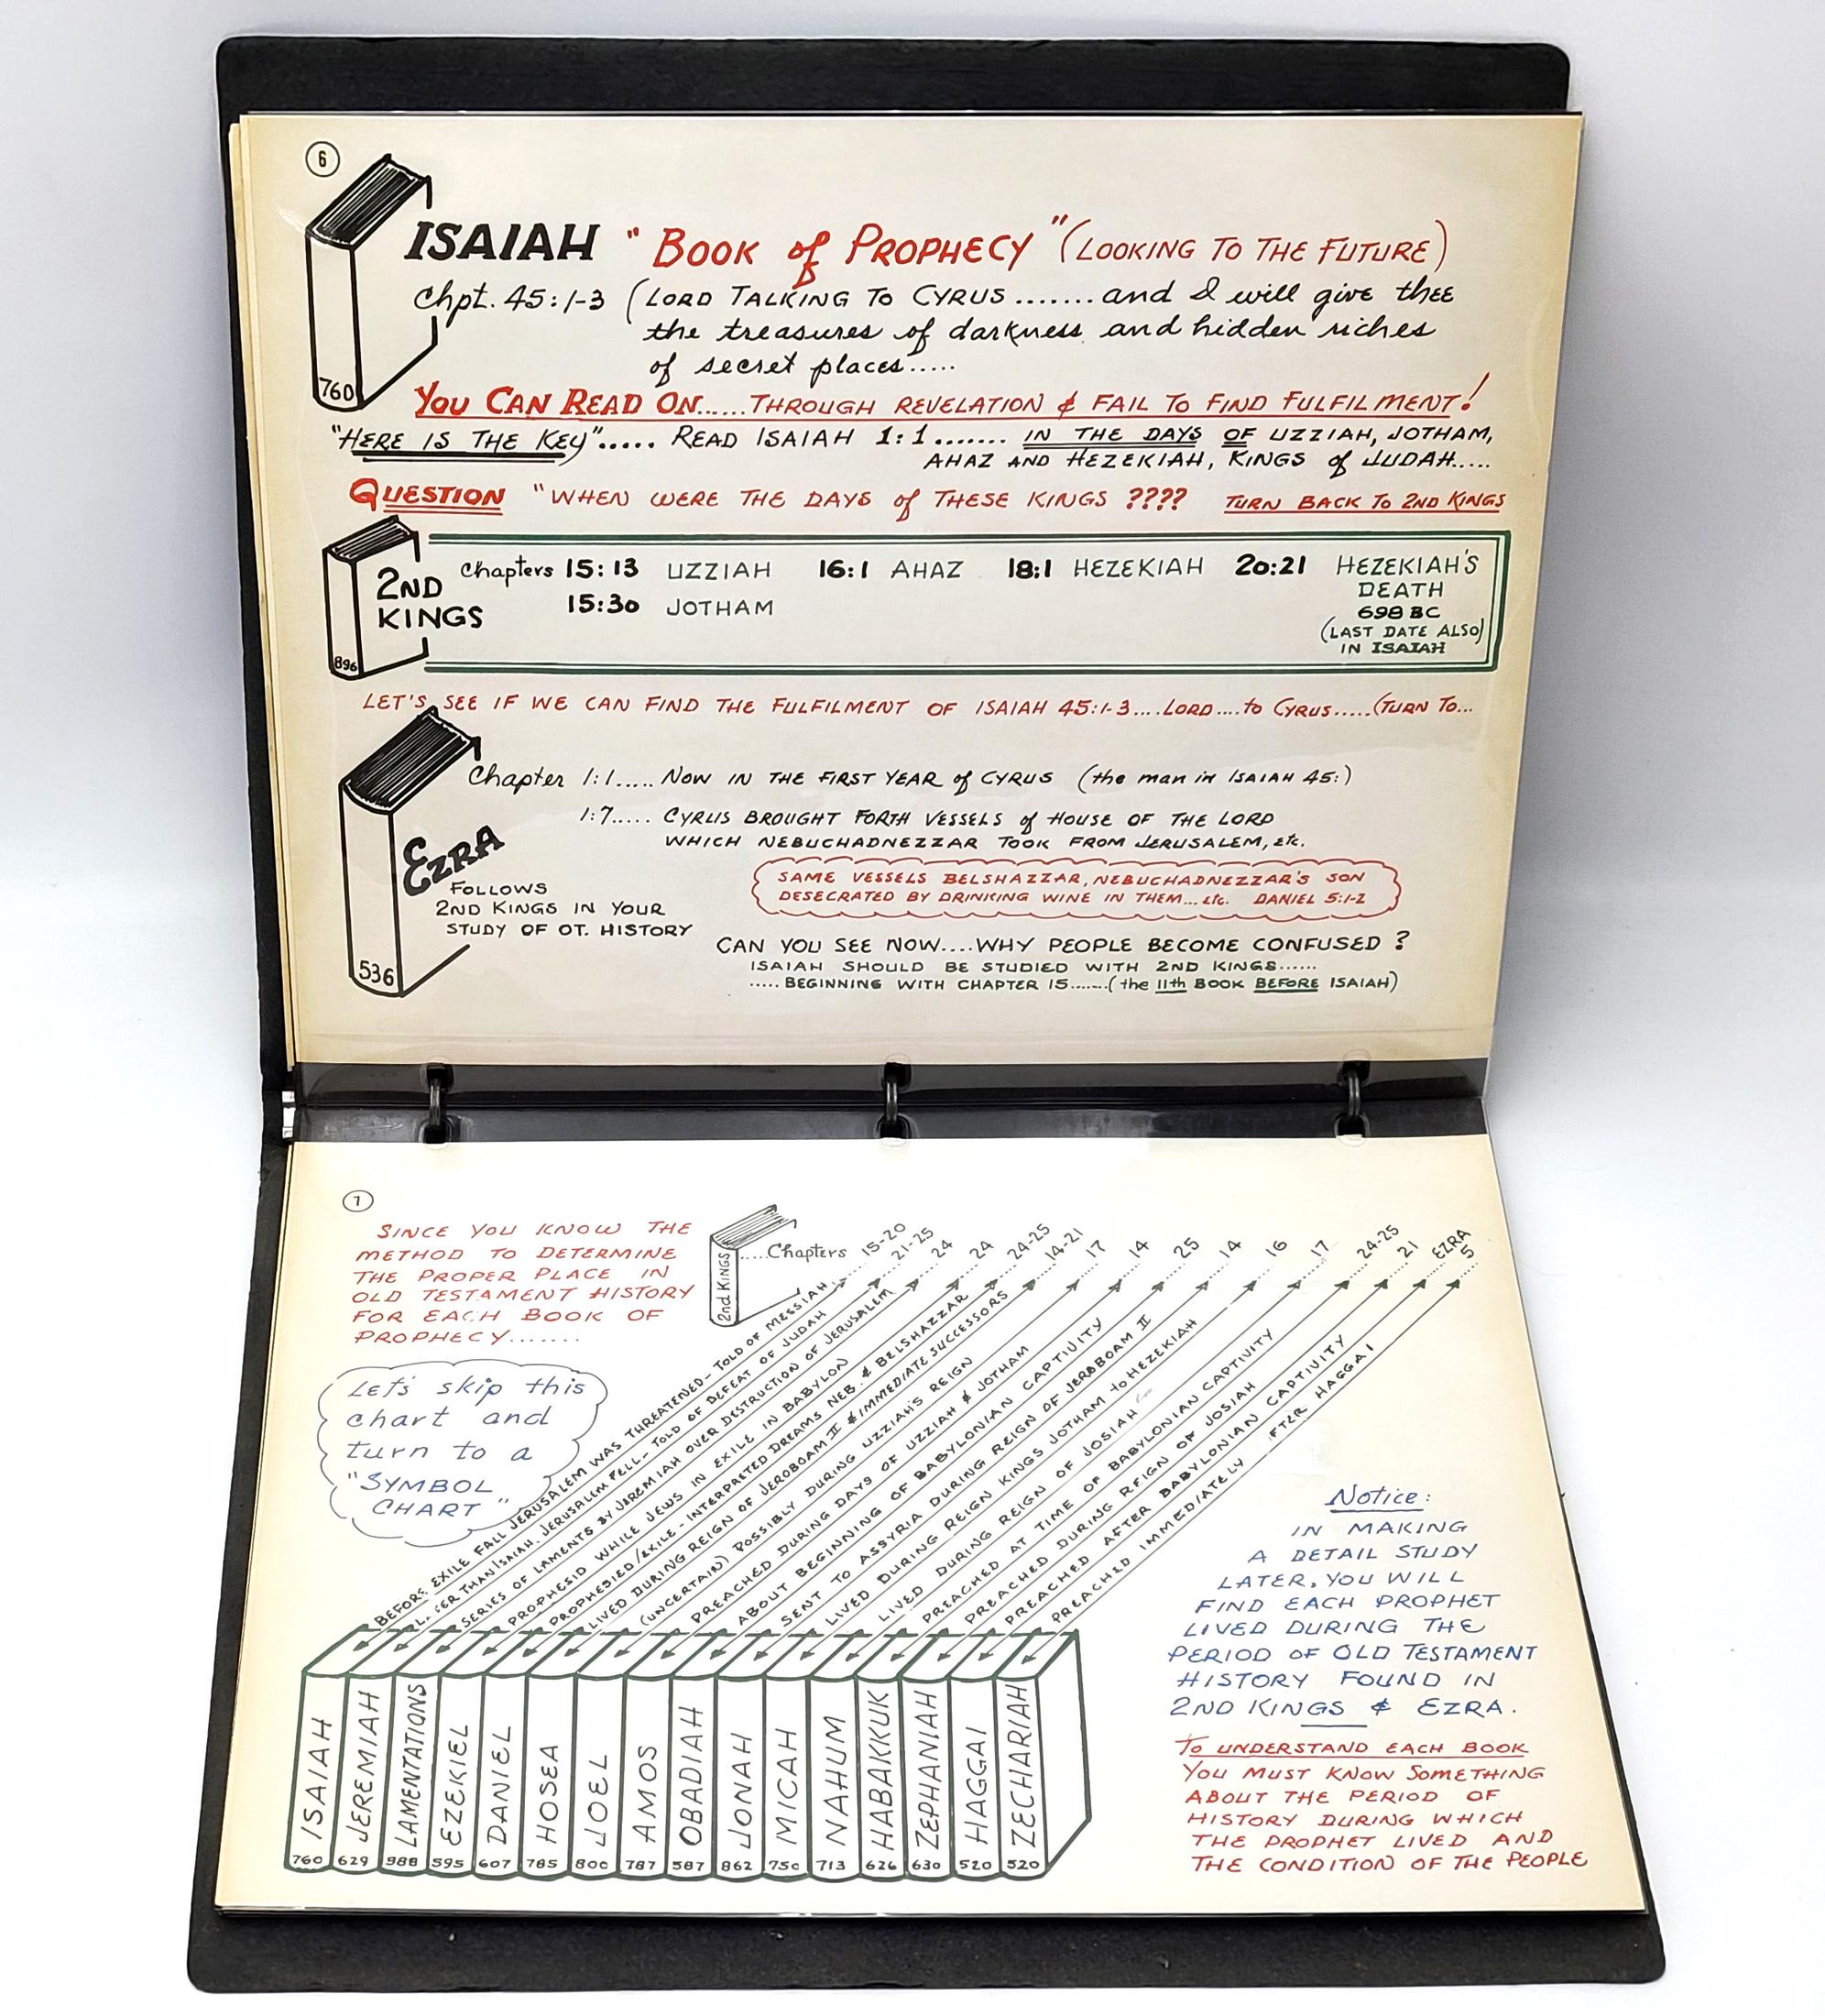 6
ISAIAH "BOOK of PROPHECY" (LOOKING TO THE FUTURE)
Chpt. 45:1-3 (LORD TALKING TO CYRUS.......and I will give thee
the treasures of darkness and hidden riches
of secret places.....
760
YOU CAN READ ON......THROUGH REVELATION & FAIL TO FIND FULFILMENT!
"HERE IS THE KEY"..... READ ISAIAH 1:1....... IN THE DAYS OF UZZIAH, JOTHAM,
AHAZ AND HEZEKIAH, KINGS of JUDAH.....
QUESTION "WHEN WERE THE DAYS of THESE KINGS ???? TURN BACK TO 2ND KINGS
2ND KINGS
896
Chapters 15:13 UZZIAH 16:1 AHAZ 18:1 HEZEKIAH 20:21 HEZEKIAH'S
15:30 JOTHAM
DEATH
698 BC
(LAST DATE ALSO)
IN ISAIAH
LET'S SEE IF WE CAN FIND THE FULFILMENT OF ISAIAH 45:1-3....LORD....to CYRUS.....(TURN TO...
Chapter 1:1..... NOW IN THE FIRST YEAR of CYRUS (the man in ISAIAH 45:)
1:7..... CYRUS BROUGHT FORTH VESSELS of HOUSE OF THE LORD
WHICH NEBUCHADNEZZAR TOOK FROM JERUSALEM, etc.
EZRA
FOLLOWS
2ND KINGS IN YOUR
STUDY OF OT. HISTORY
536
SAME VESSELS BELSHAZZAR, NEBUCHADNEZZAR'S SON
DESECRATED BY DRINKING WINE IN THEM...etc. DANIEL 5:1-2
CAN YOU SEE NOW....WHY PEOPLE BECOME CONFUSED ?
ISAIAH SHOULD BE STUDIED WITH 2ND KINGS......
.....BEGINNING WITH CHAPTER 15.......(the 11th BOOK BEFORE ISAIAH)
7
SINCE YOU KNOW THE
METHOD TO DETERMINE
THE PROPER PLACE IN
OLD TESTAMENT HISTORY
FOR EACH BOOK OF
PROPHECY.......
Let's skip this
chart and
turn to a
"SYMBOL
CHART"
2nd KINGS
....Chapters 15-20 21-25 24 24 24-25 14-21 17 14 25 14 16 17 24-25 21 EZRA 5
BEFORE EXILE FALL JERUSALEM WAS THREATENED - TOLD OF MESSIAH
THAN ISAIAH. JERUSALEM FELL - TOLD OF DEFEAT OF JUDAH
SERIES OF LAMENTS BY JEREMIAH OVER DESTRUCTION OF JERUSALEM
PROPHESID WHILE JEWS IN EXILE IN BABYLON
PROPHESIED/EXILE - INTERPRETED DREAMS NEB. & BELSHAZZAR
LIVED DURING REIGN OF JEROBOAM II & IMMEDIATE SUCCESSORS
(UNCERTAIN) POSSIBLY DURING UZZIAH'S REIGN
PREACHED DURING DAYS OF UZZIAH & JOTHAM
ABOUT BEGINNING OF BABYLONIAN CAPTIVITY
SENT TO ASSYRIA DURING REIGN OF JEROBOAM II
LIVED DURING REIGN KINGS JOTHAM to HEZEKIAH
LIVED DURING REIGN OF JOSIAH
PREACHED AT TIME OF BABYLONIAN CAPTIVITY
PREACHED DURING REIGN OF JOSIAH
PREACHED AFTER BABYLONIAN CAPTIVITY
PREACHED IMMEDIATELY HAGGAI
ISAIAH 760
JEREMIAH 629
LAMENTATIONS 988
EZEKIEL 595
DANIEL 607
HOSEA 785
JOEL 800
AMOS 787
OBADIAH 587
JONAH 862
MICAH 750
NAHUM 713
HABAKKUK 626
ZEPHANIAH 630
HAGGAI 520
ZECHARIAH 520
Notice:
IN MAKING
A DETAIL STUDY
LATER, YOU WILL
FIND EACH PROPHET
LIVED DURING THE
PERIOD OF OLD TESTAMENT
HISTORY FOUND IN
2ND KINGS & EZRA.
TO UNDERSTAND EACH BOOK
YOU MUST KNOW SOMETHING
ABOUT THE PERIOD OF
HISTORY DURING WHICH
THE PROPHET LIVED AND
THE CONDITION OF THE PEOPLE